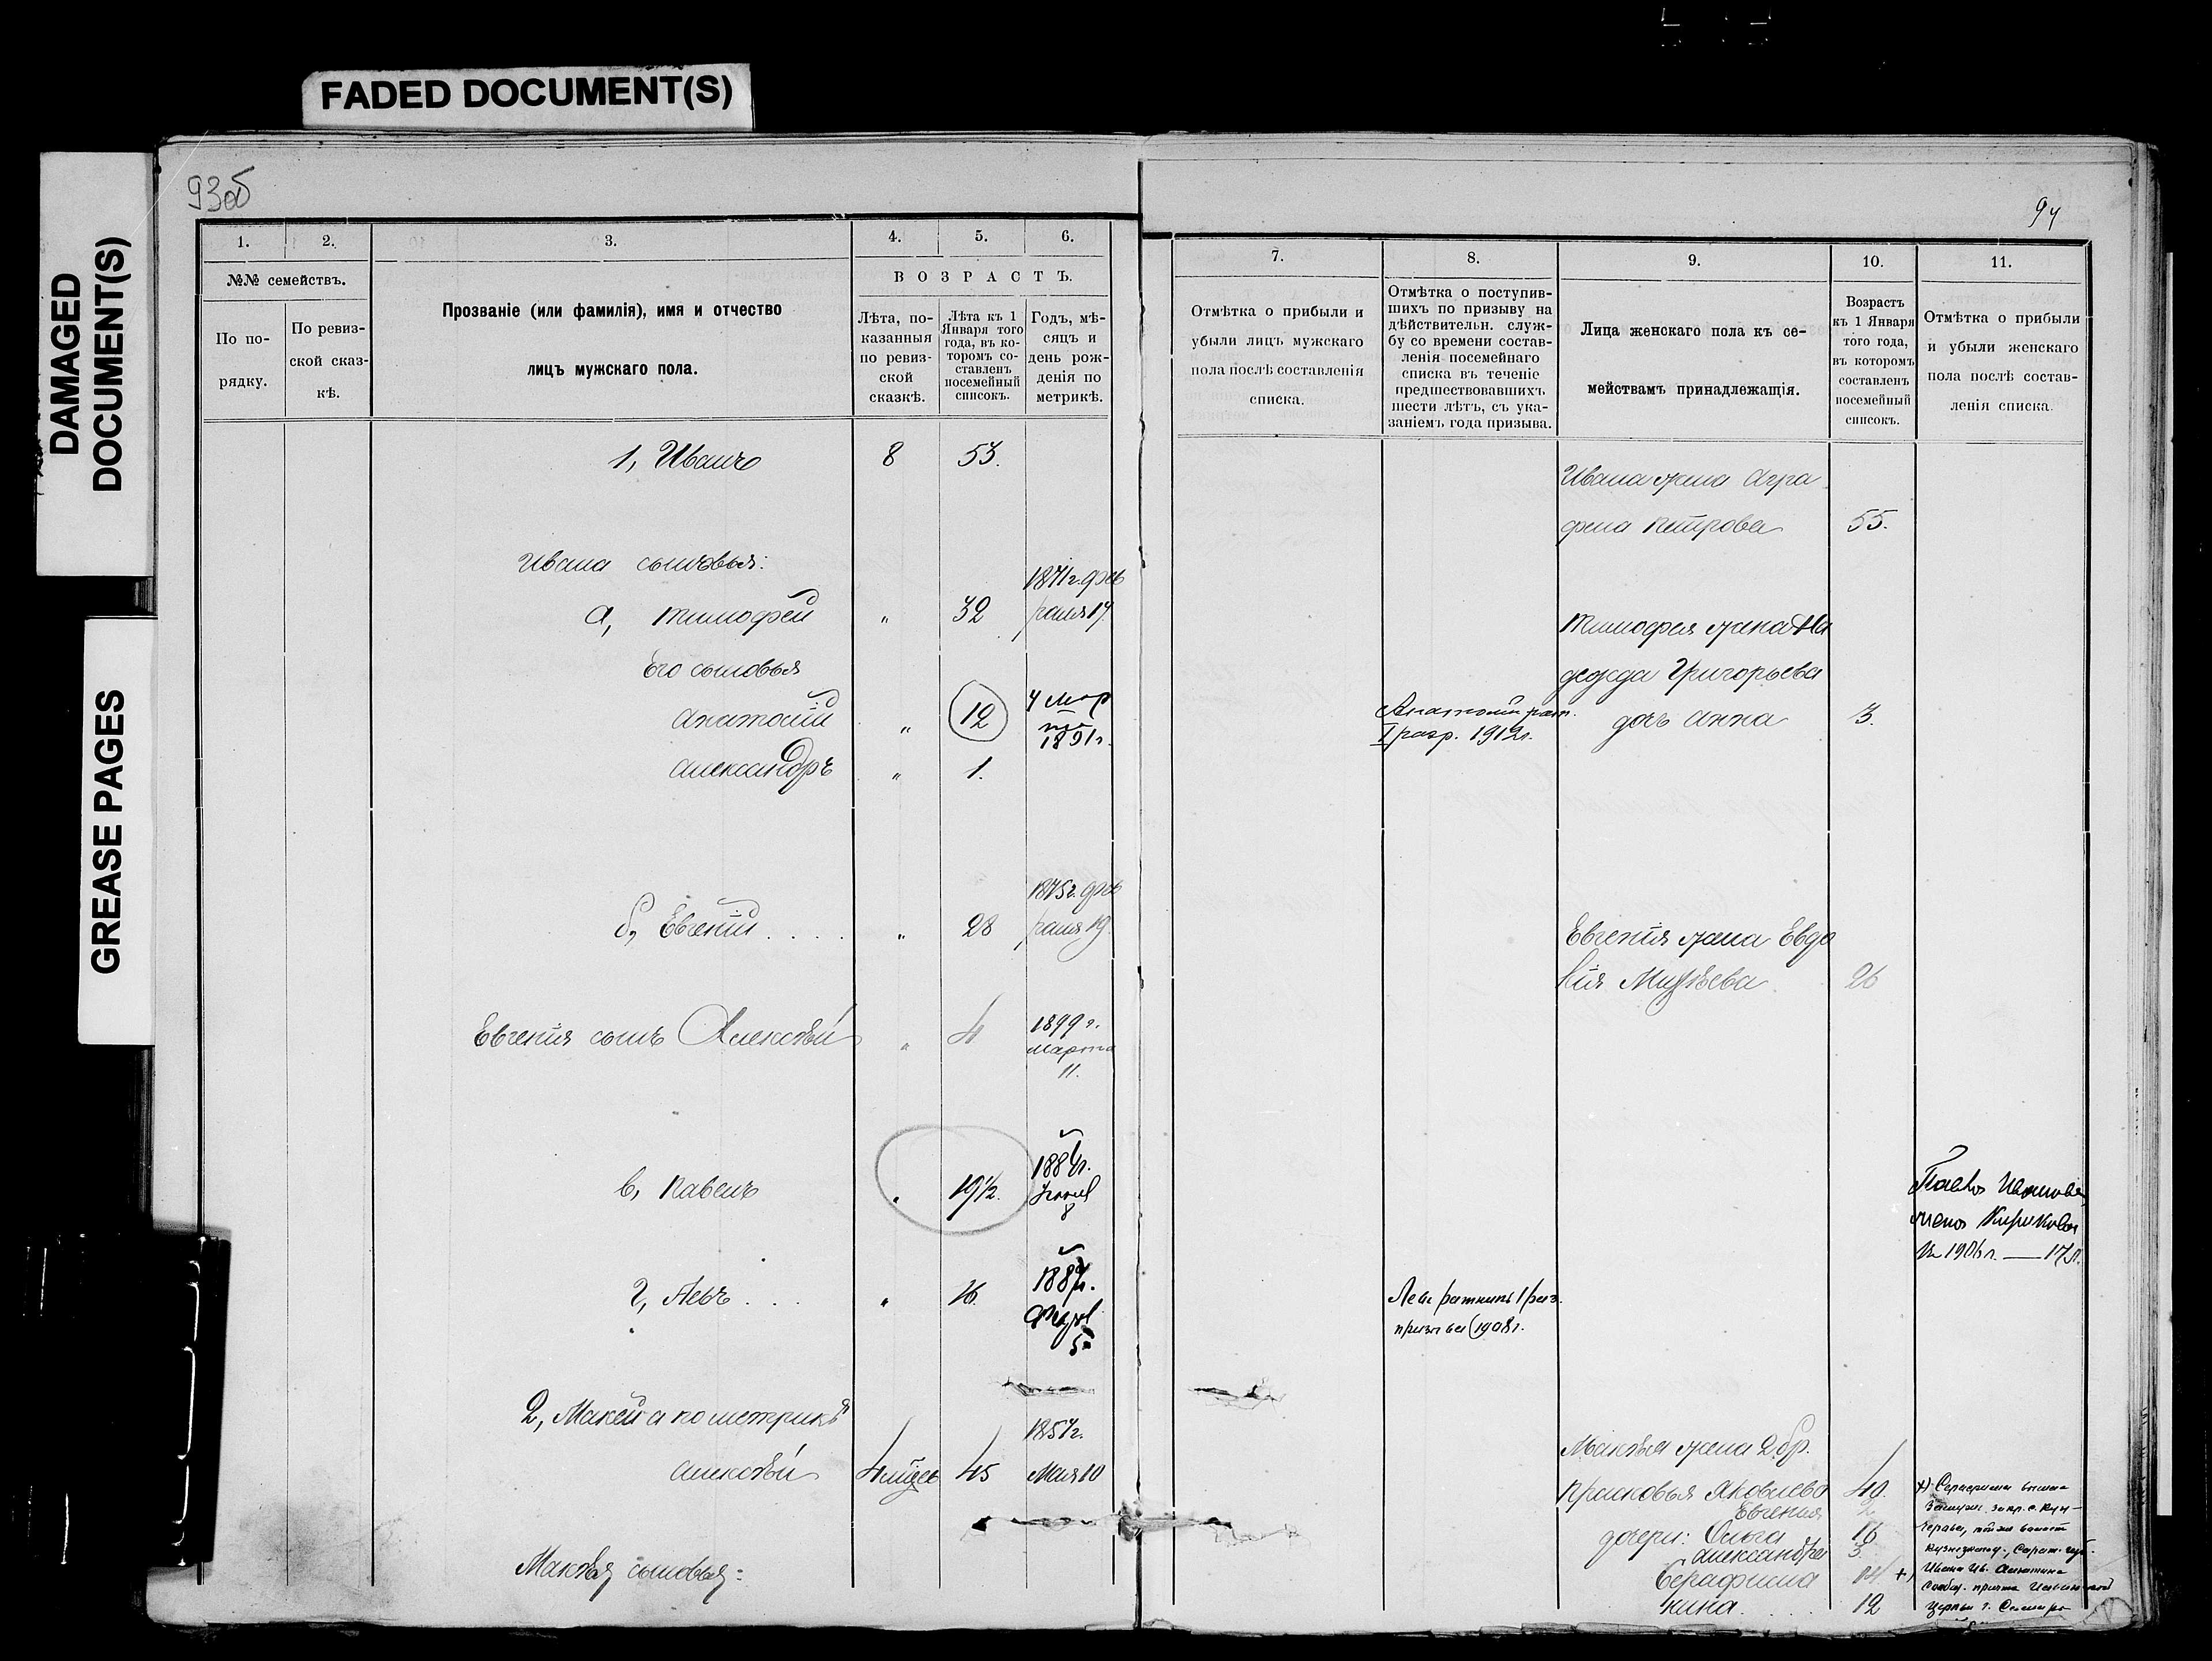 FADED DOCUMENT(S)
DAMAGED
DOCUMENT(S)
GREASE PAGES
93об
1. 2. 3. 4. 5. 6.
№№ семействъ.
По по-
рядку.
По ревиз-
ской сказ-
кѣ.
Прозваніе (или фамилія), имя и отчество
лицъ мужскаго пола.
ВОЗРАСТЪ.
Лѣта, по-
казанныя
по ревиз-
ской
сказкѣ.
Лѣта къ 1
Января того
года, въ ко-
торомъ со-
ставленъ
посемейный
списокъ.
Годъ, мѣ-
сяцъ и
день рож-
денія по
метрикѣ.
1, Иванъ 8 53.
Ивана сыновья:
а, Тимофей " 32
1871 г. фев
раля 17.
Его сыновья
Анатолій " 12
4 мар
та
1891 г.
Александръ " 1.
б, Евгеній . . . . " 28
1875 г. фев
раля 19.
Евгенія сынъ Алексѣй " 4
1899 г.
Марта
11.
в, Павелъ " 19½.
1884 г.
8
г, Левъ . . . " 16.
1887 г.
5
2, Макей а по метрикѣ
Алексѣй 45
1857 г.
Мая 10
Макѣя сыновья:
94
7. 8. 9. 10. 11.
Отмѣтка о прибыли и
убыли лицъ мужскаго
пола послѣ составленія
списка.
Отмѣтка о поступив-
шихъ по призыву на
дѣйствительн. служ-
бу со времени состав-
ленія посемейнаго
списка въ теченіе
предшествовавшихъ
шести лѣтъ, съ ука-
заніемъ года призыва.
Лица женскаго пола къ се-
мействамъ принадлежащія.
Возрастъ
къ 1 Января
того года,
въ которомъ
составленъ
посемейный
списокъ.
Отмѣтка о прибыли
и убыли женскаго
пола послѣ состав-
ленія списка.
Ивана жена Агра
фена Петрова 55.
Тимофея жена На
дежда Григорьева
Анатолій рат.
I разр. 1912 г.
дочь Анна 3.
Евгенія жена Евдо
кія 26
Павла Иванова
жена
въ 1906 г. — 17 л.
Левъ ратникъ 1 раз.
призыва 1908 г.
Макѣя жена 2 бр.
Прасковья Яковлева 40.
Евгенія 2
дочери: Ольга 16
Александра 3.
Серафима 14 +)
Нина . . . . 12
+) Серафима вышла
замуж. за кр. с. Куч-
волости
Кузнецкаго у., Сарат. губ.
Ивана Ив.
церкви г.